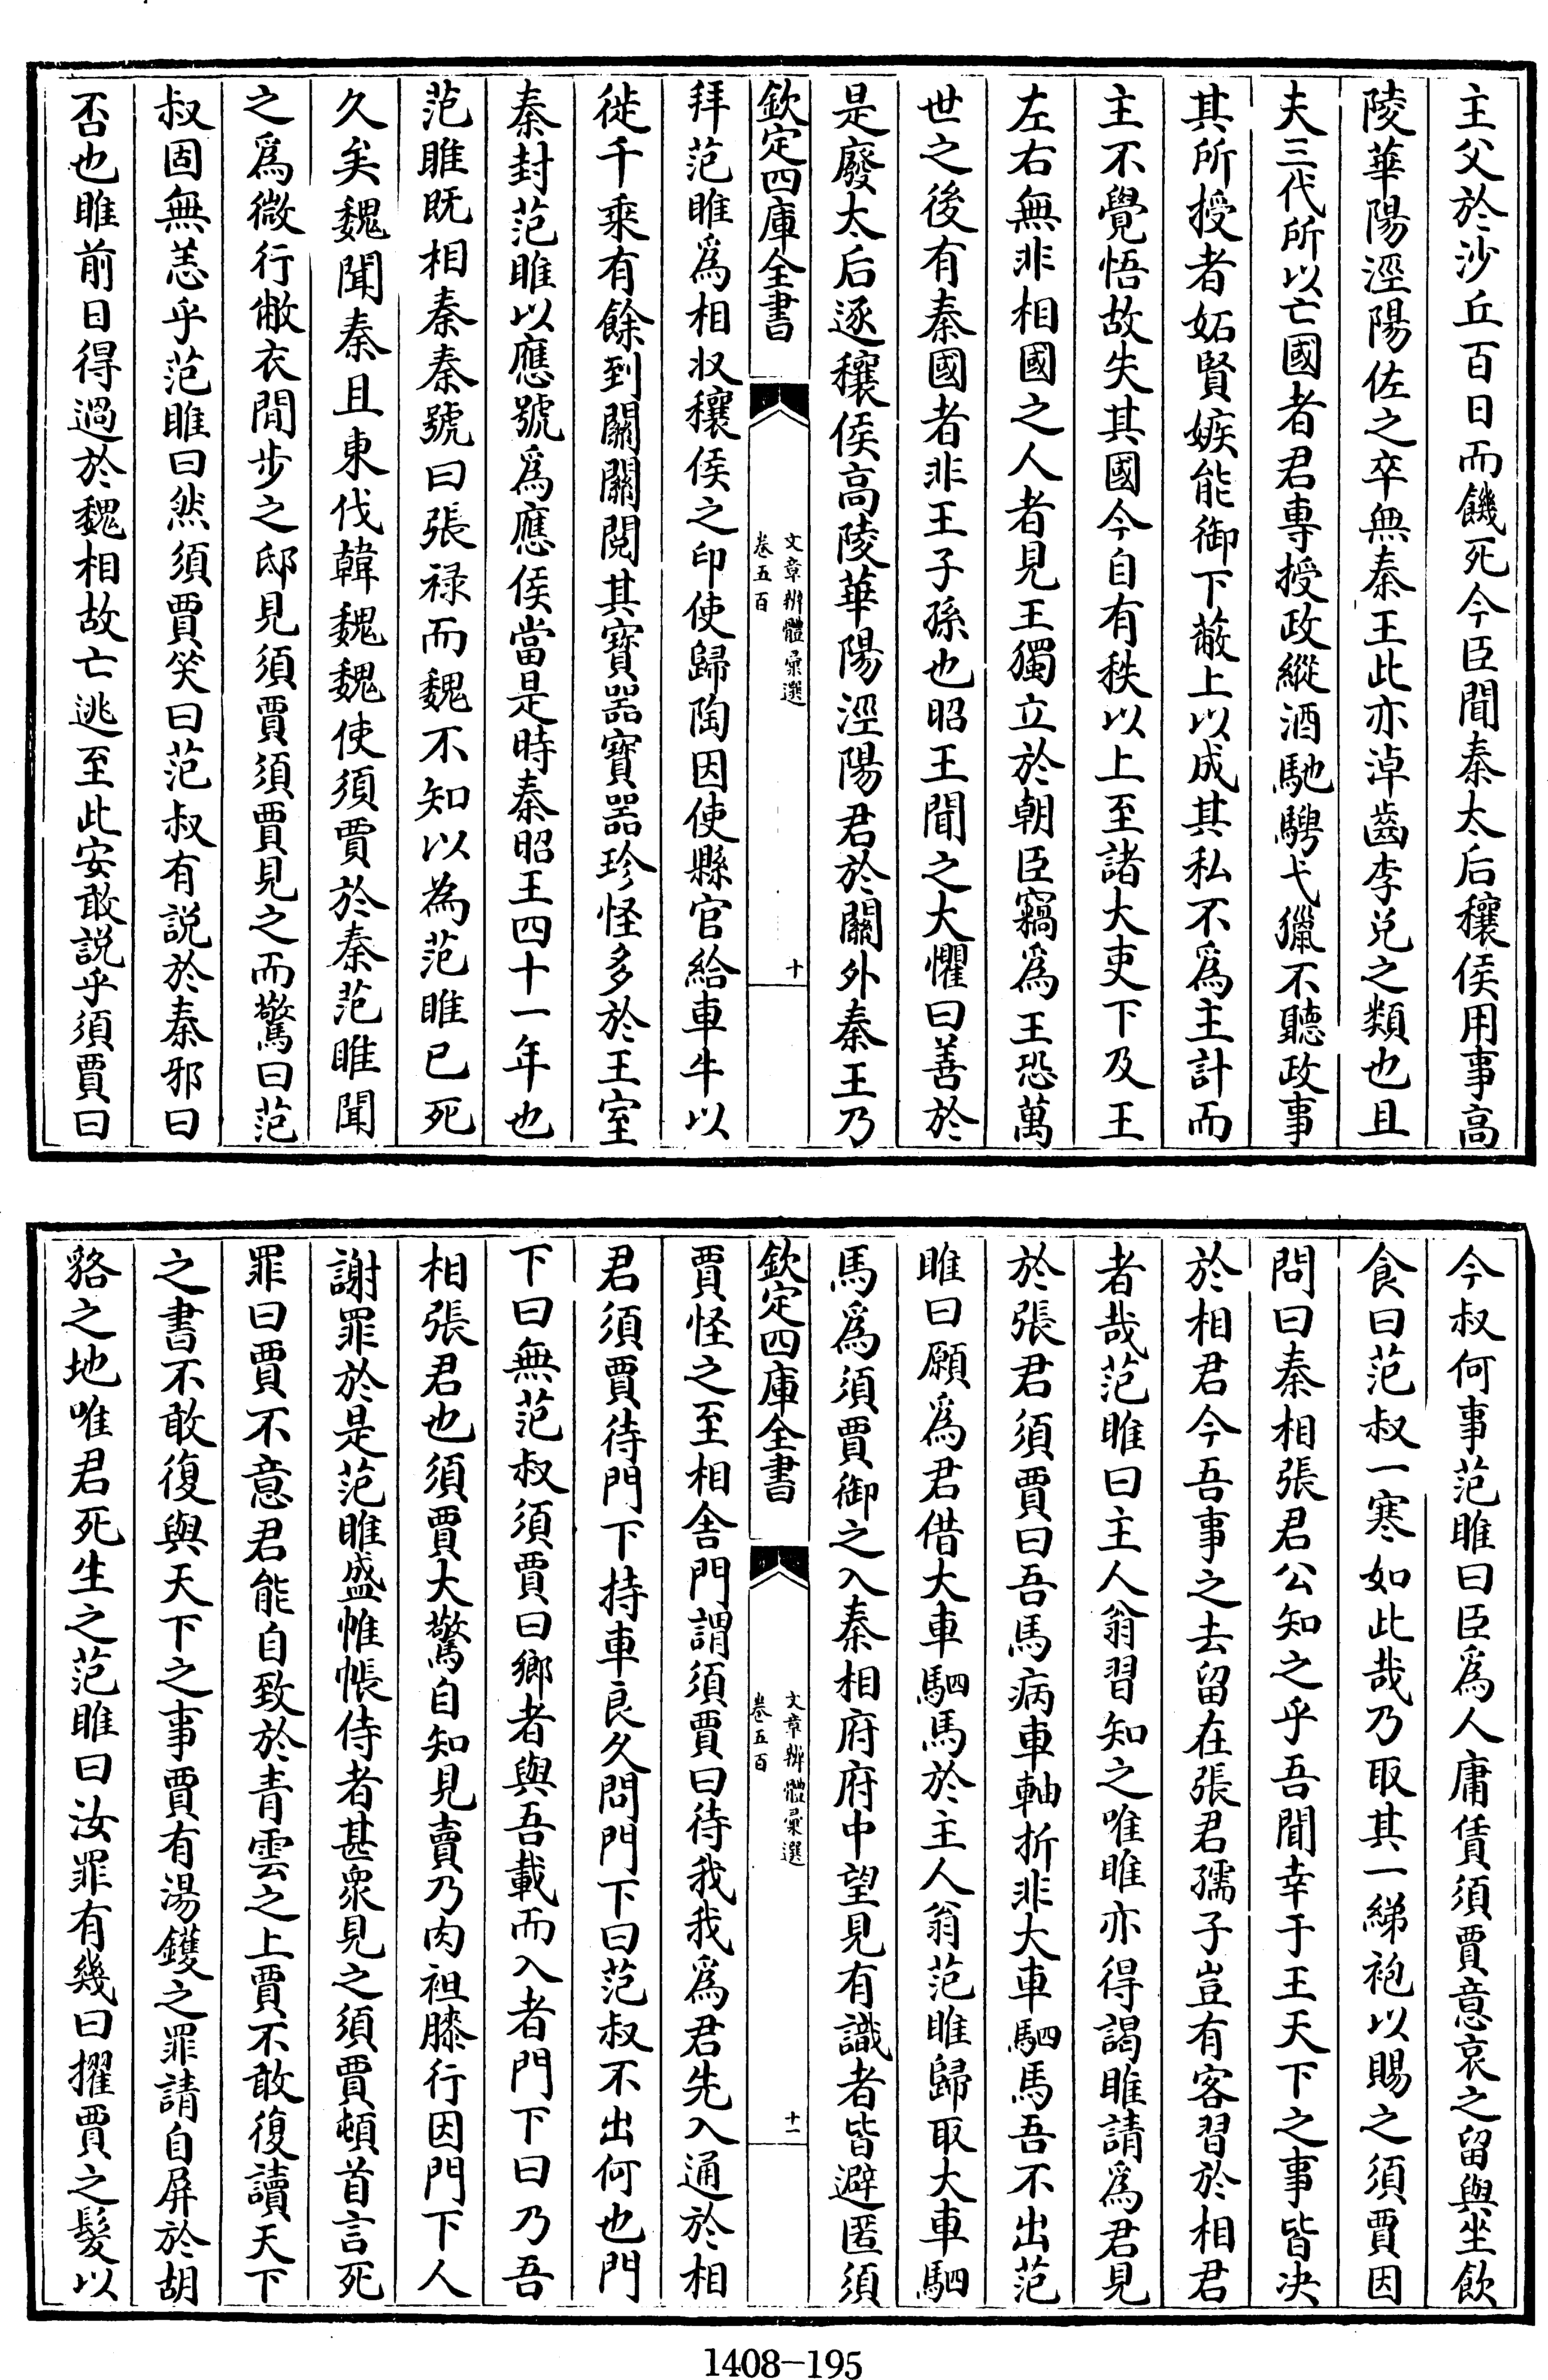 主父於沙丘百日而饑死今臣聞秦太后穰侯用事高
陵華陽涇陽佐之卒無秦王此亦淖齒李兌之類也且
夫三代所以亡國者君專授政縱酒馳騁弋獵不聽政事
其所授者妬賢嫉能御下蔽上以成其私不爲主計而
主不覺悟故失其國今自有秩以上至諸大吏下及王
左右無非相國之人者見王獨立於朝臣竊爲王恐萬
世之後有秦國者非王子孫也昭王聞之大懼曰善於
是廢太后逐穰侯高陵華陽涇陽君於關外秦王乃
欽定四庫全書
文章辨體彙選
卷五百
十
拜范睢爲相收穰侯之印使歸陶因使縣官給車牛以
徙千乘有餘到關關閱其寶器寶器珍怪多於王室
秦封范睢以應號爲應侯當是時秦昭王四十一年也
范睢既相秦秦號曰張禄而魏不知以為范睢已死
久矣魏聞秦且東伐韓魏魏使須賈於秦范睢聞
之爲微行敝衣閒步之邸見須賈須賈見之而驚曰范
叔固無恙乎范睢曰然須賈笑曰范叔有説於秦邪曰
否也睢前日得過於魏相故亡逃至此安敢説乎須賈曰
今叔何事范睢曰臣爲人庸賃須賈意哀之留與坐飲
食曰范叔一寒如此哉乃取其一綈袍以賜之須賈因
問曰秦相張君公知之乎吾聞幸于王天下之事皆決
於相君今吾事之去留在張君孺子豈有客習於相君
者哉范睢曰主人翁習知之唯睢亦得謁睢請爲君見
於張君須賈曰吾馬病車軸折非大車駟馬吾不出范
睢曰願爲君借大車駟馬於主人翁范睢歸取大車駟
馬爲須賈御之入秦相府府中望見有識者皆避匿須
欽定四庫全書
文章辨體彙選
卷五百
十一
賈怪之至相舎門謂須賈曰待我我爲君先入通於相
君須賈待門下持車良久問門下曰范叔不出何也門
下曰無范叔須賈曰鄉者與吾載而入者門下曰乃吾
相張君也須賈大驚自知見賣乃肉袒膝行因門下人
謝罪於是范睢盛帷帳侍者甚衆見之須賈頓首言死
罪曰賈不意君能自致於青雲之上賈不敢復讀天下
之書不敢復與天下之事賈有湯鑊之罪請自屏於胡
貉之地唯君死生之范睢曰汝罪有幾曰擢賈之髮以
1408-195